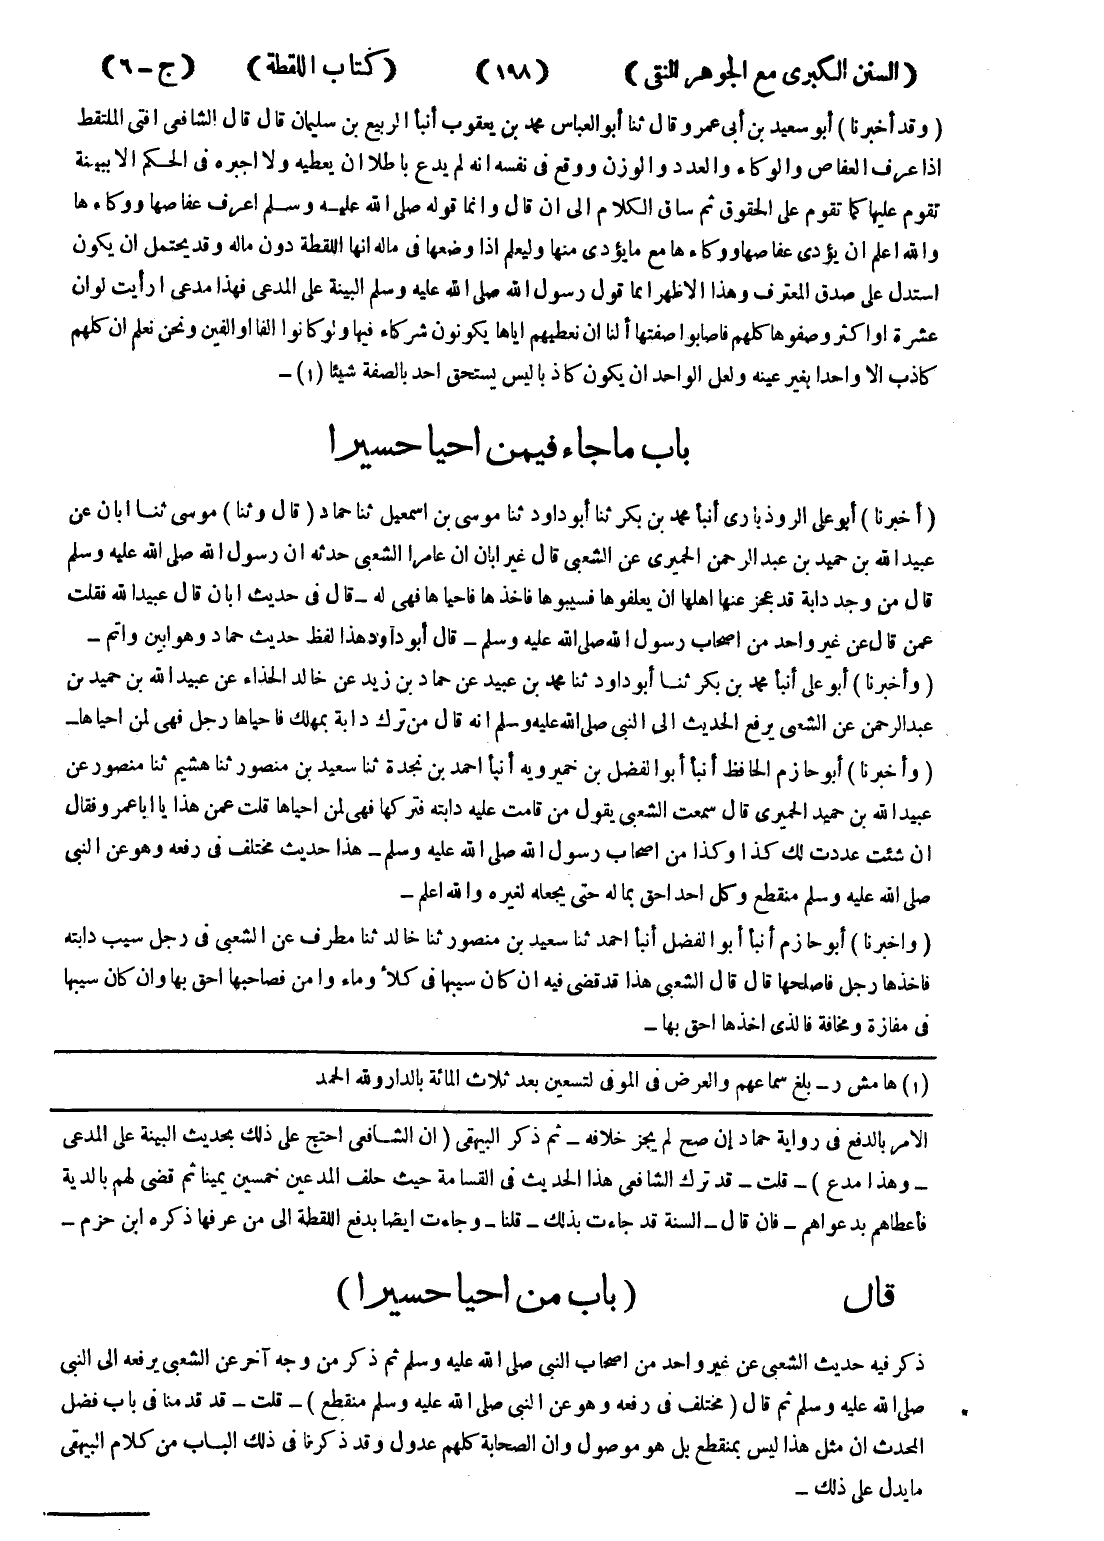 (السنن الكبرى مع الجوهر النقى) (١٩٨) (كتاب اللقطة) (ج-٦)
(وقد أخبرنا) أبو سعيد بن أبى عمرو قال ثنا أبو العباس محمد بن يعقوب أنبأ الربيع بن سليمان قال قال الشافعى افتى الملتقط
اذا عرف العفاص والوكاء والعدد والوزن ووقع فى نفسه انه لم يدع باطلا ان يعطيه ولا اجبره فى الحكم الا ببينة
تقوم عليها كما تقوم على الحقوق ثم ساق الكلام الى ان قال وانما قوله صلى الله عليه وسلم اعرف عفاصها ووكاءها
والله اعلم ان يؤدى عفاصها ووكاءها مع ما يؤدى منها وليعلم اذا وضعها فى ماله انها اللقطة دون ماله وقد يحتمل ان يكون
استدل على صدق المعترف وهذا الاظهر انما قول رسول الله صلى الله عليه وسلم البينة على المدعى فهذا مدعى ارأيت لو ان
عشرة او اكثر وصفوها كلهم فاصابوا صفتها ألنا ان نعطيهم اياها يكونون شركاء فيها ولو كانوا الفا او الفين ونحن نعلم ان كلهم
كاذب الا واحدا بغير عينه ولعل الواحد ان يكون كاذبا ليس يستحق احد بالصفة شيئا (١) –
باب ماجاء فيمن احيا حسيرا
(أخبرنا) أبو على الروذبارى أنبأ محمد بن بكر ثنا أبو داود ثنا موسى بن اسمعيل ثنا حماد (قال وثنا) موسى ثنا ابان عن
عبيد الله بن حميد بن عبد الرحمن الحميرى عن الشعبى قال غير ابان ان عامرا الشعبى حدثه ان رسول الله صلى الله عليه وسلم
قال من وجد دابة قد عجز عنها اهلها ان يعلفوها فسيبوها فاخذها فاحياها فهى له – قال فى حديث ابان قال عبيد الله فقلت
عمن قال عن غير واحد من اصحاب رسول الله صلى الله عليه وسلم – قال أبو داود هذا لفظ حديث حماد وهو ابين واتم –
(وأخبرنا) أبو على أنبأ محمد بن بكر ثنا أبو داود ثنا محمد بن عبيد عن حماد بن زيد عن خالد الحذاء عن عبيد الله بن حميد بن
عبد الرحمن عن الشعبى يرفع الحديث الى النبى صلى الله عليه وسلم انه قال من ترك دابة بمهلك فاحياها رجل فهى لمن احياها –
(وأخبرنا) أبو حازم الحافظ أنبأ أبو الفضل بن خميرويه أنبأ احمد بن نجدة ثنا سعيد بن منصور ثنا هشيم ثنا منصور عن
عبيد الله بن حميد الحميرى قال سمعت الشعبى يقول من قامت عليه دابته فتركها فهى لمن احياها قلت عمن هذا يا ابا عمرو فقال
ان شئت عددت لك كذا وكذا من اصحاب رسول الله صلى الله عليه وسلم – هذا حديث مختلف فى رفعه وهو عن النبى
صلى الله عليه وسلم منقطع وكل احد احق بماله حتى يجعله لغيره والله اعلم –
(واخبرنا) أبو حازم أنبأ أبو الفضل أنبأ احمد ثنا سعيد بن منصور ثنا خالد ثنا مطرف عن الشعبى فى رجل سيب دابته
فاخذها رجل فاصلحها قال قال الشعبى هذا قد قضى فيه ان كان سيبها فى كلأ وماء وامن فصاحبها احق بها وان كان سيبها
فى مفازة ومخافة فالذى اخذها احق بها –
(١) هامش ر – بلغ سماعهم والعرض فى الموفى لتسعين بعد ثلاث المائة بالدار ولله الحمد
الامر بالدفع فى رواية حماد إن صح لم يجز خلافه – ثم ذكر البيهقى (ان الشافعى احتج على ذلك بحديث البينة على المدعى
– وهذا مدع) – قلت – قد ترك الشافعى هذا الحديث فى القسامة حيث حلف المدعين خمسين يمينا ثم قضى لهم بالدية
فأعطاهم بدعواهم – فان قال – السنة قد جاءت بذلك – قلنا – وجاءت ايضا بدفع اللقطة الى من عرفها ذكره ابن حزم –
قال (باب من احيا حسيرا)
ذكر فيه حديث الشعبى عن غير واحد من اصحاب النبى صلى الله عليه وسلم ثم ذكر من وجه آخر عن الشعبى يرفعه الى النبى
صلى الله عليه وسلم ثم قال (مختلف فى رفعه وهو عن النبى صلى الله عليه وسلم منقطع) – قلت – قد قدمنا فى باب فضل
المحدث ان مثل هذا ليس بمنقطع بل هو موصول وان الصحابة كلهم عدول وقد ذكرنا فى ذلك الباب من كلام البيهقى
ما يدل على ذلك –